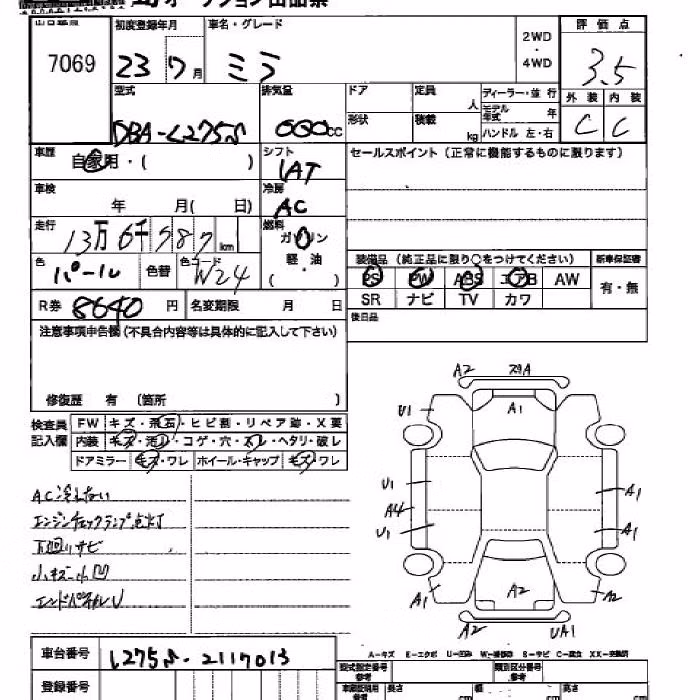 7069
初度登録年月
車名・グレード
23 7月
ミラ
2WD
・
4WD
評価点
3.5
型式
DBA-L275S
排気量
660cc
ドア
定員
人
ディーラー・並行
モデル年式
年
外装 内装
C C
形状
積載
kg
ハンドル 左・右
車歴
自家用・( )
シフト
IAT
セールスポイント (正常に機能するものに限ります)
車検
年 月( 日)
冷房
AC
走行
13万6千787km
燃料
ガソリン
軽・油
( )
色
パール
色替
色コード
W24
装備品 (純正品に限り○をつけてください)
新車保証書
PS PW ABS エアB AW
有・無
SR ナビ TV カワ
R券 8640円
名変期限 月 日
後日品
注意事項申告欄(不具合内容等は具体的に記入して下さい)
修復歴 有 (箇所 )
検査員
記入欄
FW キズ・飛石・ヒビ割・リペア跡・X要
内装 キズ・汚レ・コゲ・穴・スレ・ヘタリ・破レ
ドアミラー キズ・ワレ ホイール・キャップ キズ・ワレ
AC冷えない
エンジンチェックランプ点灯
下廻りサビ
小キズ小凹
エンドパネルU
A2
U1
A1
U1
A4
U1
A1
A1
A1
A2
A2
A2
UA1
車台番号 L275S-2117013
登録番号
A-キズ E-エクボ U-凹み W-補修跡 S-サビ C-腐食 XX-交換済
型式指定番号
参考
類別区分番号
参考
長さ cm
幅 cm
高さ cm